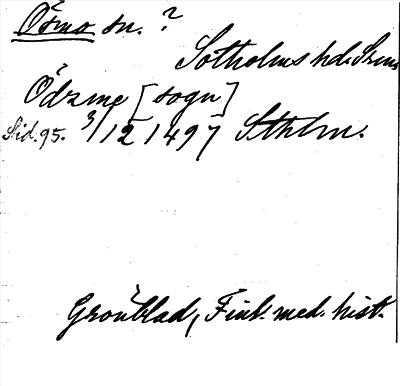 Ösmo sn. ?
Sotholms hd. Srm
Ödzme [sogn]
Sid. 95. 3/12 1497 Sthlm.
Grönblad, Finl. med. hist.